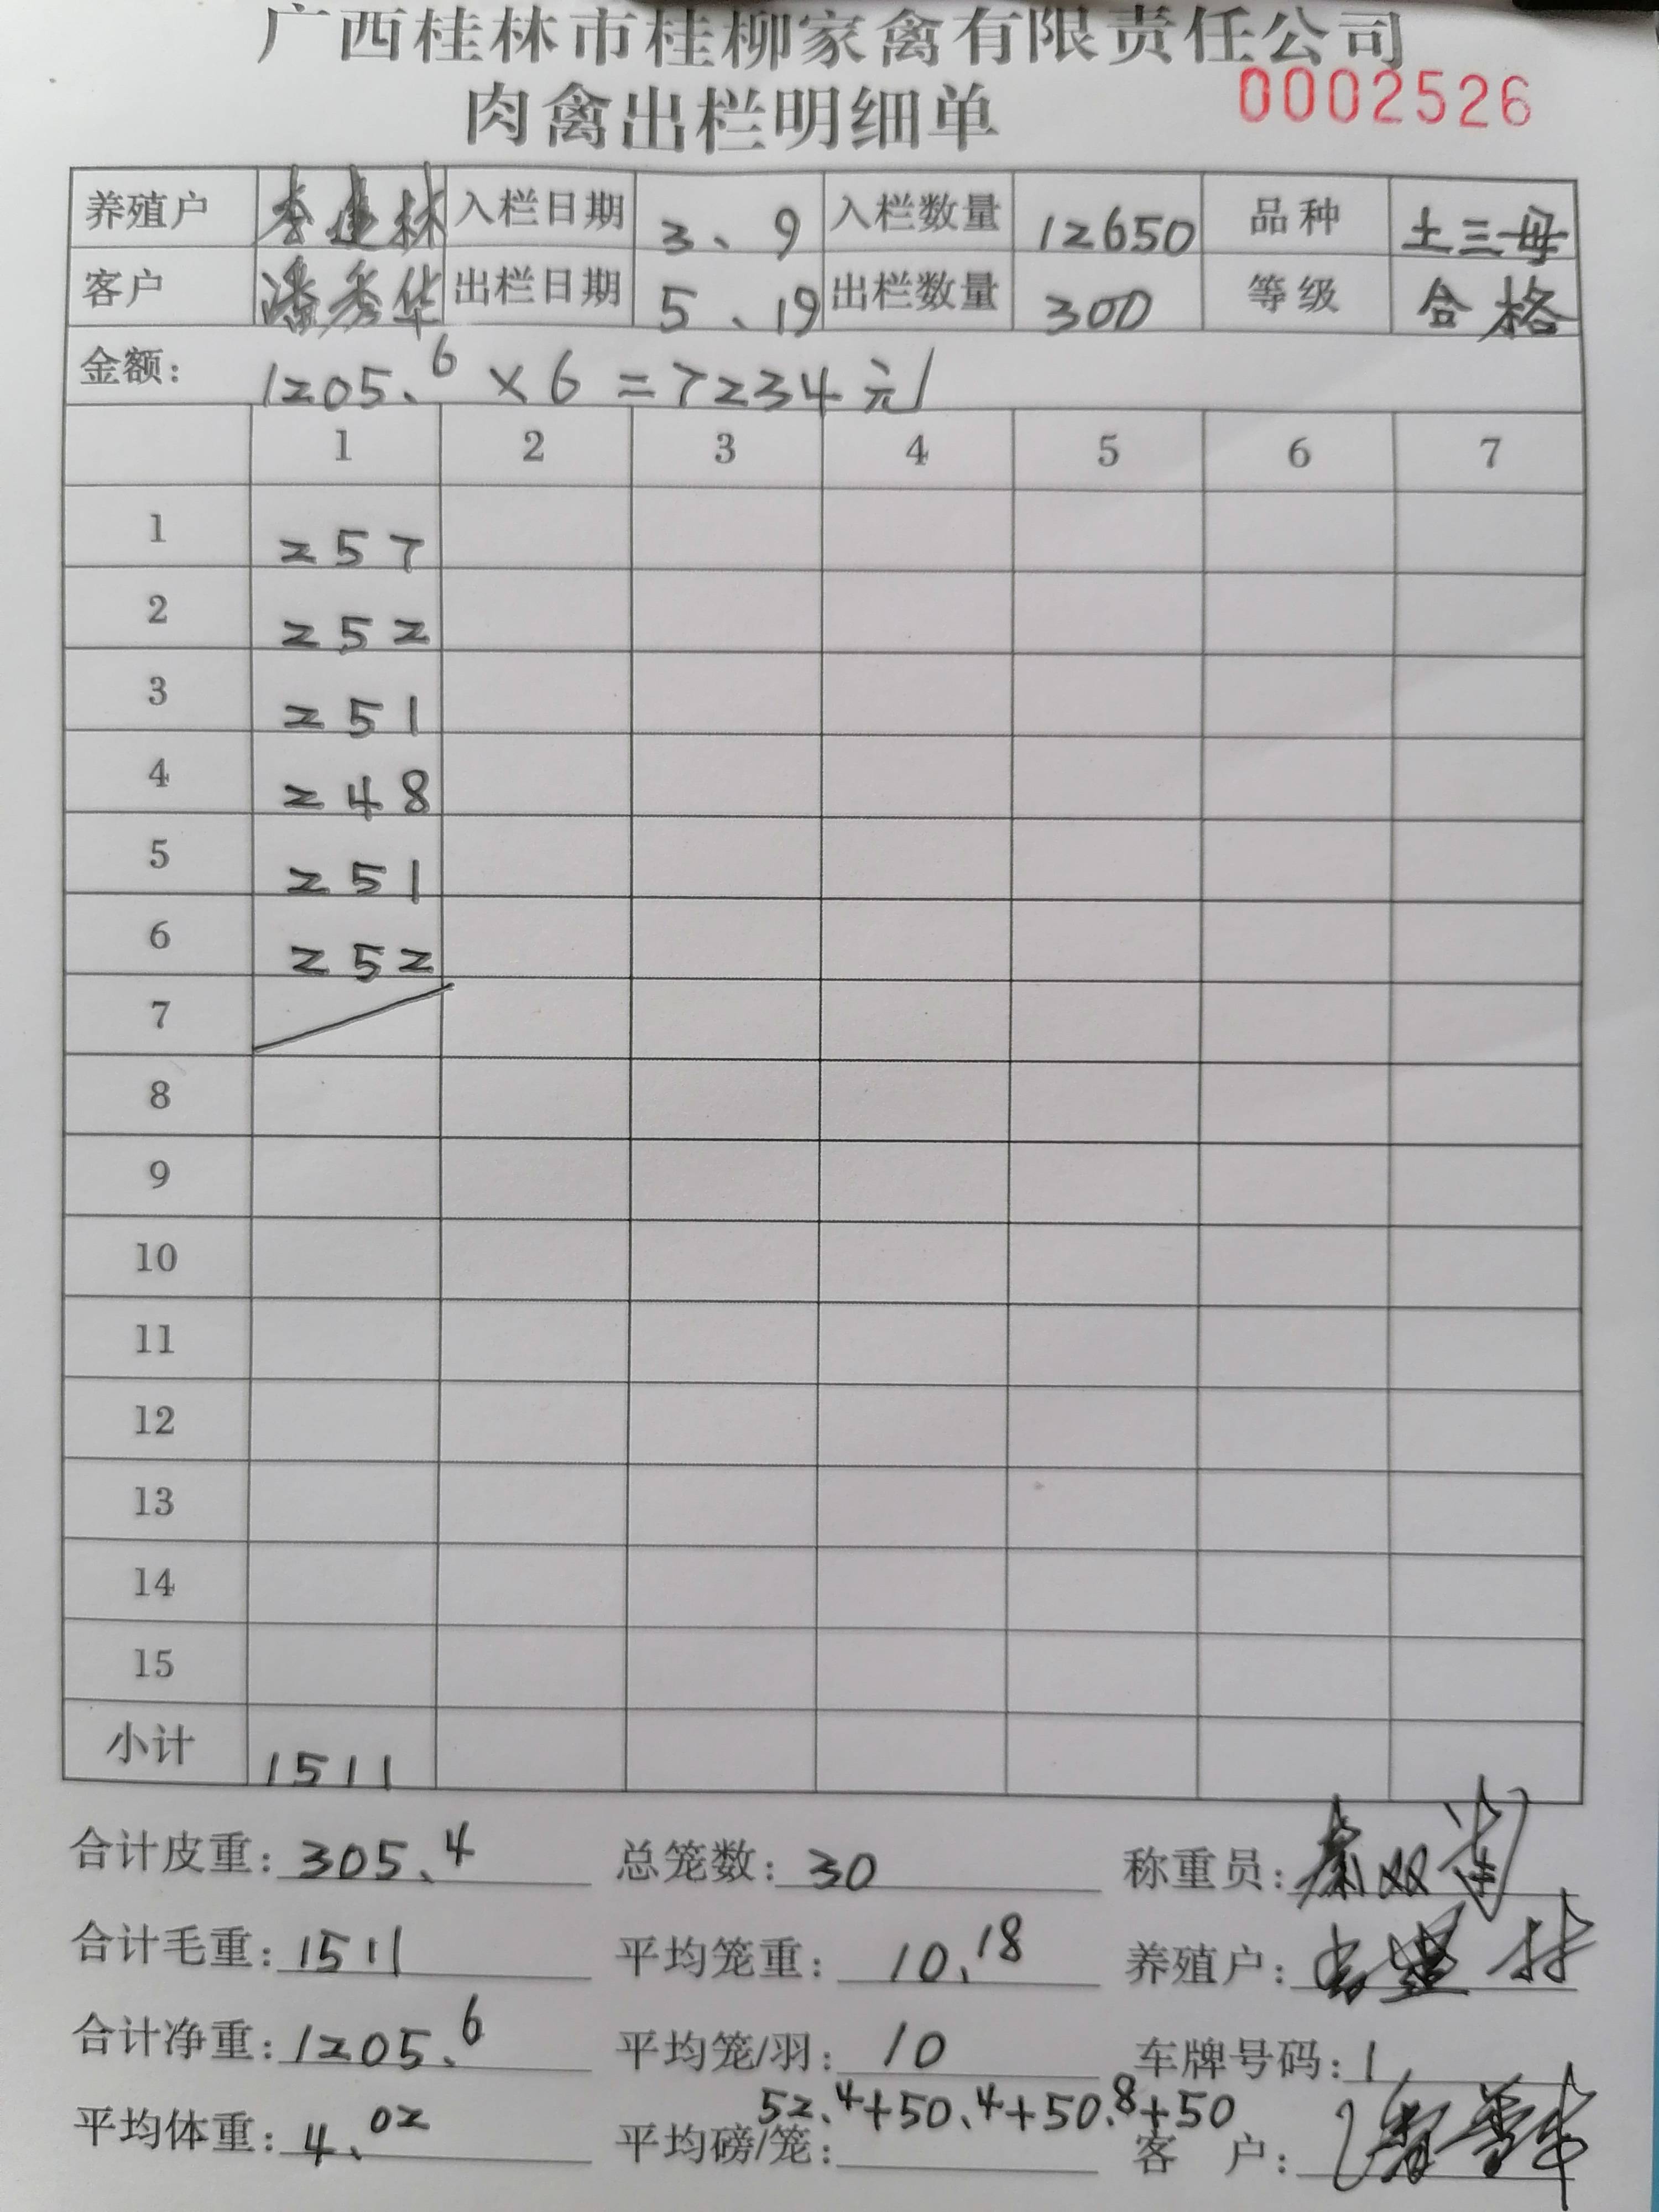 广西桂林市桂柳家禽有限责任公司
肉禽出栏明细单 0002526
养殖户 李建林 入栏日期 3、9 入栏数量 12650 品种 土三母
客户 潘秀华 出栏日期 5、19 出栏数量 300 等级 合格
金额: 1205.6 × 6 = 7234元
1 2 3 4 5 6 7
1 257
2 252
3 251
4 248
5 251
6 252
7
8
9
10
11
12
13
14
15
小计 1511
合计皮重: 305.4 总笼数: 30 称重员:
合计毛重: 1511 平均笼重: 10.18 养殖户:
合计净重: 1205.6 平均笼/羽: 10 车牌号码: 1
52.4+50.4+50.8+50
平均体重: 4.02 平均磅/笼: 客户: